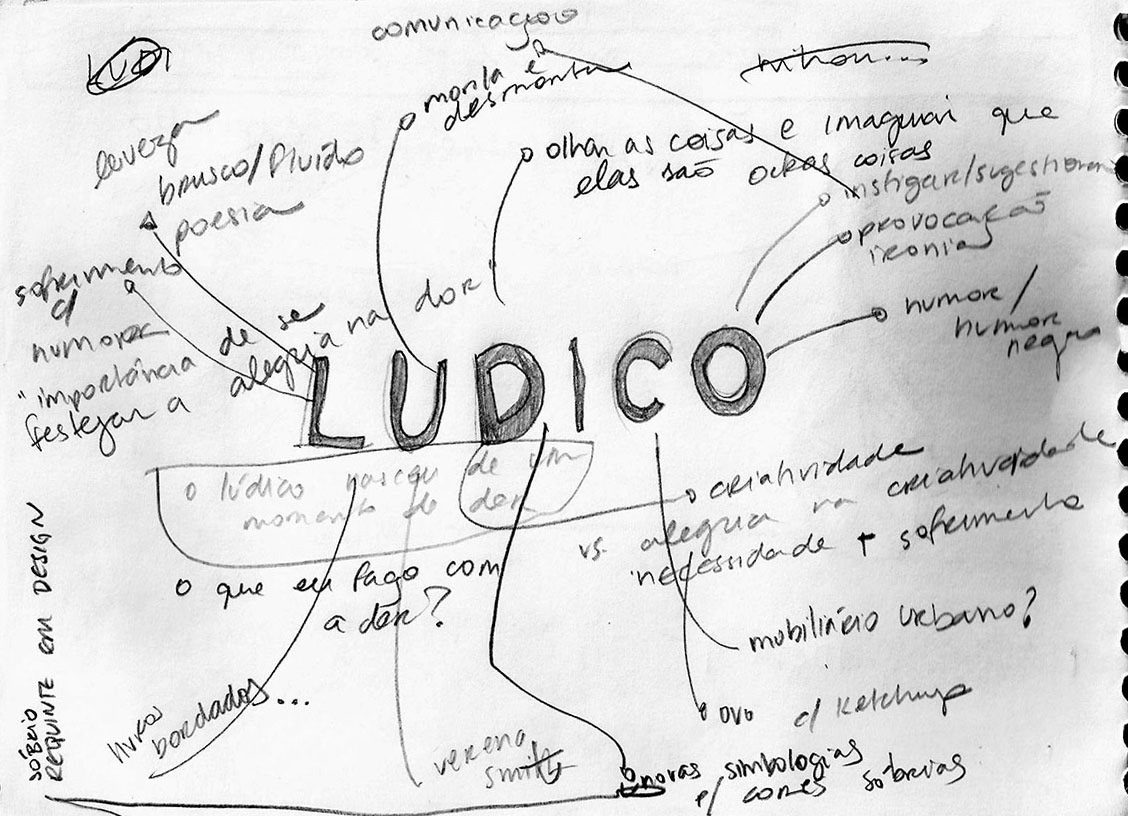 comunicação
LUDI
monta e
desmonta
leveza
brusco/fluído
poesia
olhar as coisas e imaginar que
elas são outras coisas
instigar/sugestionar
provocação
ironia
sofrimento
c/
humor
"importância de se
festejar a alegria na dor
humor/
humor
negro
LUDICO
o lúdico nasceu de um
momento de dor
criatividade
vs. alegria na criatividade
necessidade + sofrimento
o que eu faço com
a dor?
mobiliário urbano?
livros
bordados...
ovo c/ ketchup
verena
smit
novas simbologias
p/ cores sóbrias
SÓBRIO
REQUINTE EM DESIGN